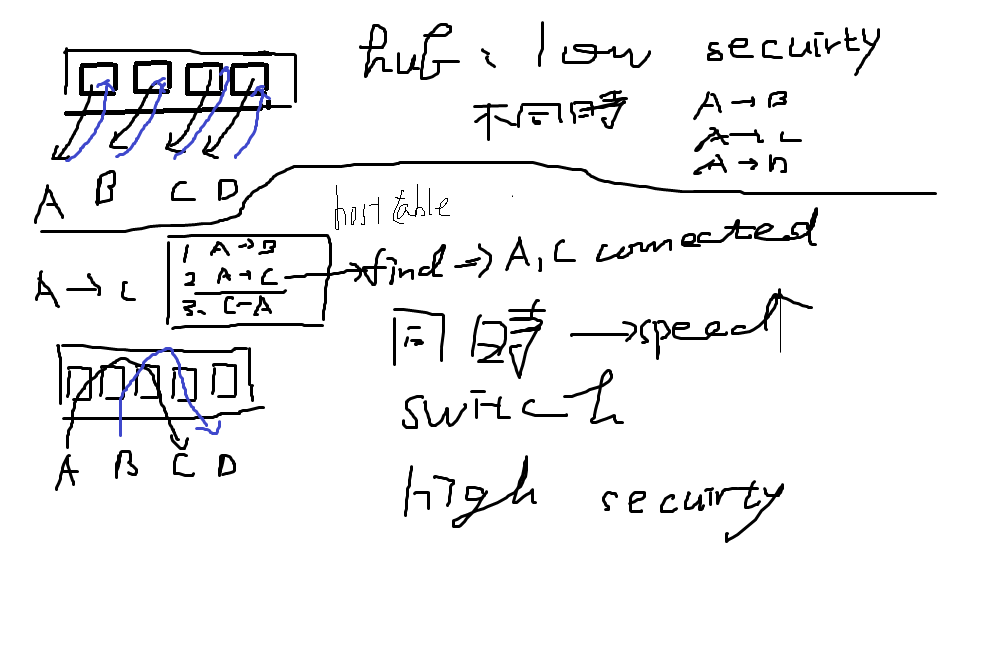 hub: low secuirty
不同時
A→B
A→C
A→D
A B C D
host table
A→C
1 A→B
2 A→C
3. C-A
→find→A,C connected
同時→speed↑
switch
A B C D
high secuirty